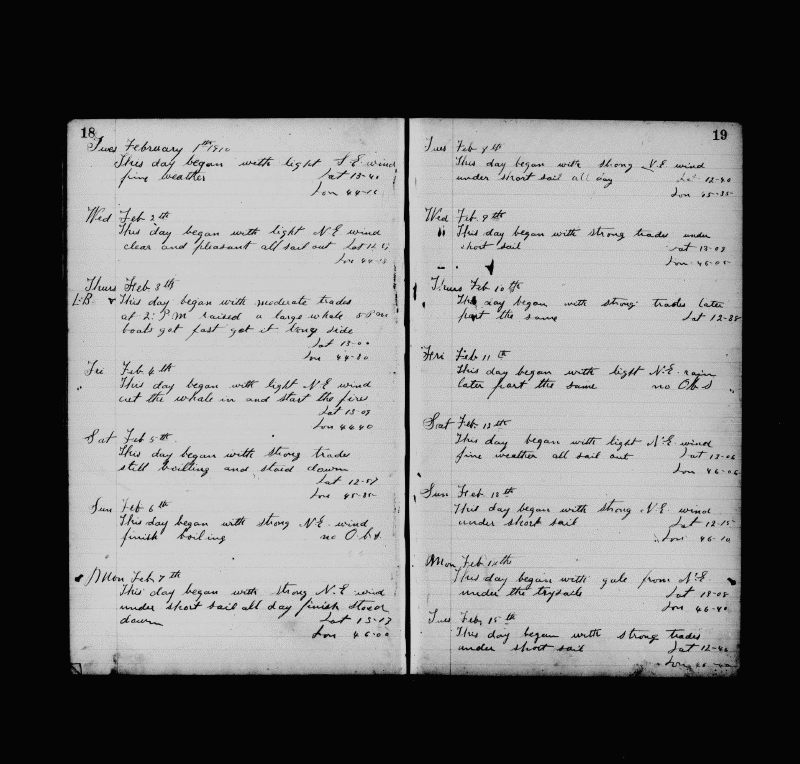 18
Tues February 1st 1910
This day began with light S.E. wind
fine weather Lat 13-40
Lon 44-10
Wed Feb 2th
This day began with light N.E. wind
clear and pleasant all sail out Lat
Lon
Thurs Feb 3th
L.B. This day began with moderate trades
at 2 P.M raised a large whale 5 P m
boats got fast got it long side
Lat 13-00
Lon 44-30
Fri Feb 4th
This day began with light N.E. wind
cut the whale in and start the fires
Lat 13-09
Lon 44 40
Sat Feb 5th
This day began with strong trades
still boilling and stoid down
Lat 12-57
Lon 45-35
Sun Feb 6th
This day began with strong N.E. wind
finish boiling no Obs
Mon Feb 7th
This day began with strong N.E. wind
under short sail all day finish stoed
down Lat 13-17
Lon 46-00
19
Tues Feb 8th
This day began with strong N.E. wind
under short sail all day Lat 12-40
Lon 45-35
Wed Feb 9th
This day began with strong trades under
short sail Lat 13-09
Lon 46-05
Thurs Feb 10th
This day began with strong trades later
part the same Lat 12-38
Fri Feb 11th
This day began with light N.E. rain
later part the same no Obs
Sat Feb 12th
This day began with light N.E. wind
fine weather all sail out Lat 13-06
Lon 46-06
Sun Feb 13th
This day began with strong N.E. wind
under short sail Lat 12-15
Lon 46-10
Mon Feb 14th
This day began with gale from N.E.
under the trysails Lat 13-08
Lon 46-40
Tues Feb 15th
This day began with strong trades
under short sail Lat 12-40
Lon